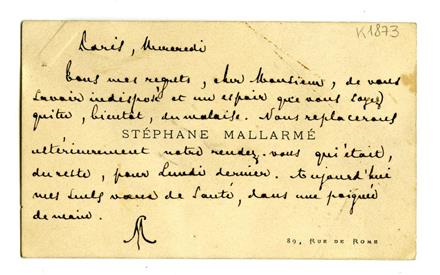 K1873
Paris, Mercredi
Tous mes regrets, cher Monsieur, de vous
savoir indisposé et un espoir que vous soyez
quitte, bientôt, du malaise. Nous replacerons
STÉPHANE MALLARMÉ
ultérieurement notre rendez-vous qui était,
du reste, pour Lundi dernier. Aujourd'hui
mes seuls vœux de Santé, dans une poignée
de main.
89, RUE DE ROME